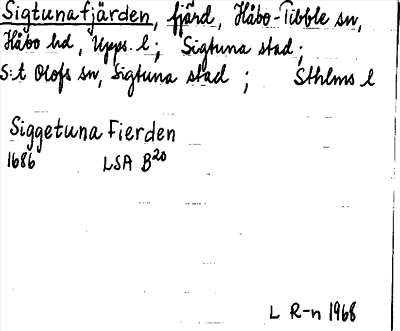 Sigtunafjärden, fjärd, Håbo-Tibble sn,
Håbo hd, Upps. l; Sigtuna stad;
S:t Olofs sn, Sigtuna stad ; Sthlms l
Siggetuna Fierden
1686 LSA B20
L R-n 1968